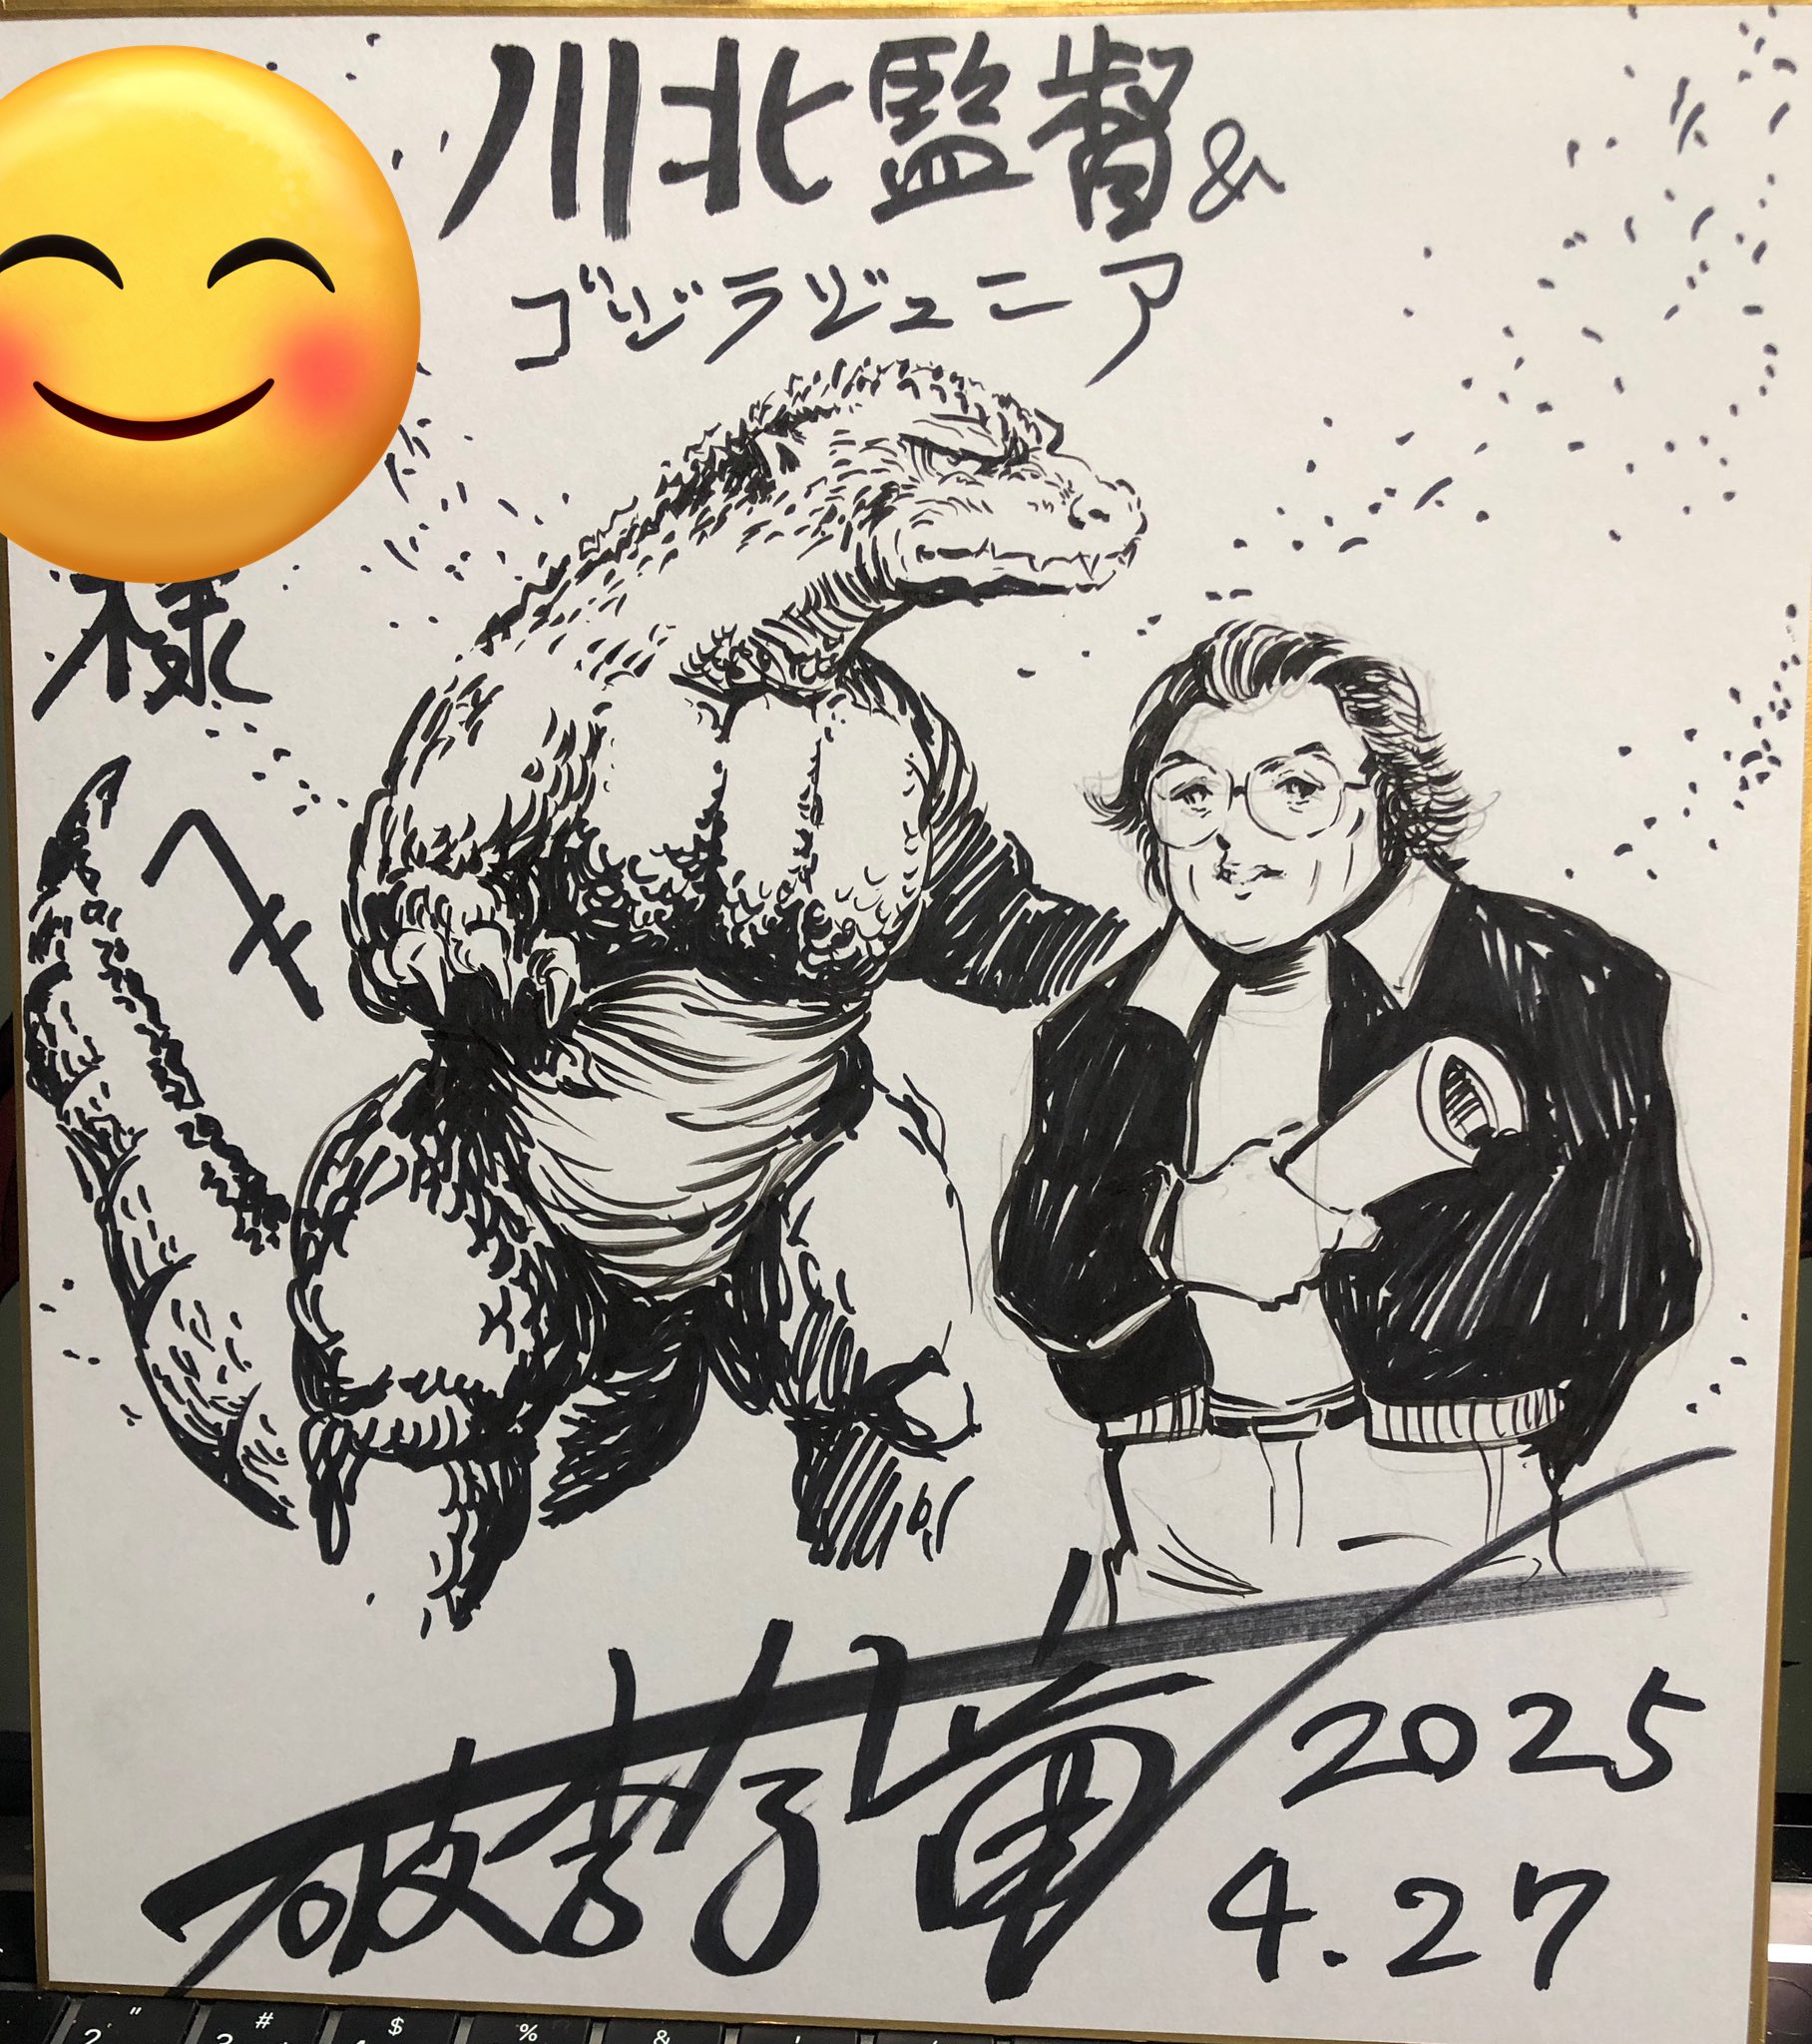 川北監督&
ゴジラジュニア
様
へ
2025
4.27